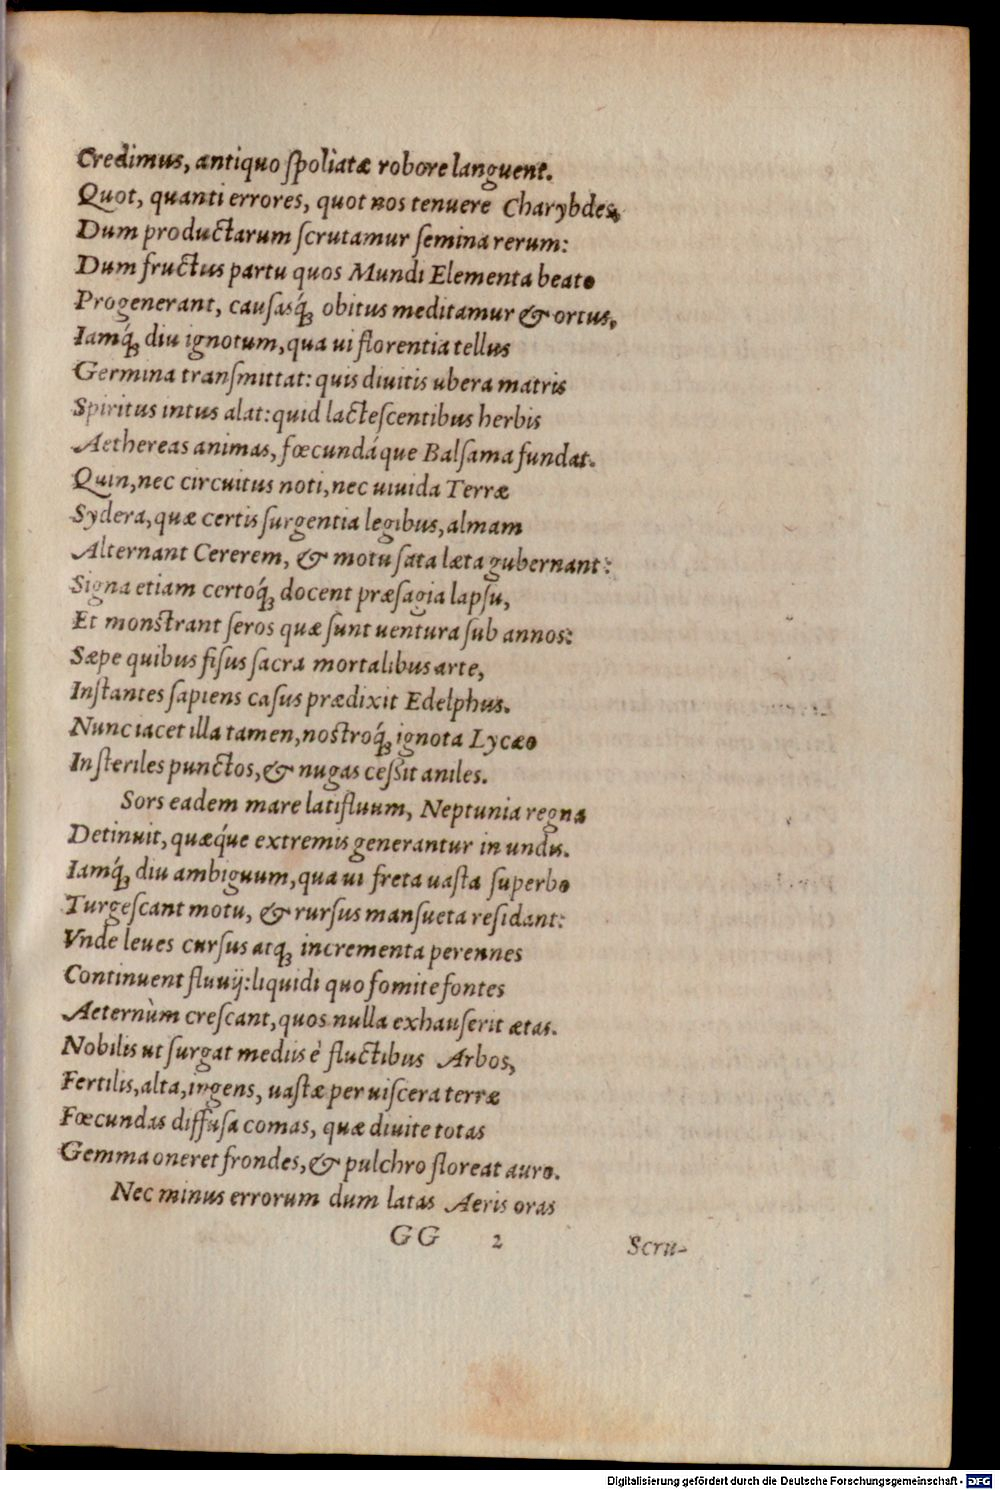 Credimus, antiquo ſpoliatæ robore languent.
Quot, quanti errores, quot nos tenuere Charybdes,
Dum productarum ſcrutamur ſemina rerum:
Dum fructus partu quos Mundi Elementa beato
Progenerant, cauſasq́; obitus meditamur & ortus,
Iamq́; diu ignotum, qua ui florentia tellus
Germina tranſmittat: quis diuitis ubera matris
Spiritus intus alat: quid lacteſcentibus herbis
Aethereas animas, fœcundáque Balſama fundat.
Quin, nec circuitus noti, nec uiuida Terræ
Sydera, quæ certis ſurgentia legibus, almam
Alternant Cererem, & motu ſata læta gubernant:
Signa etiam certoq́; docent præſagia lapſu,
Et monſtrant ſeros quæ ſunt uentura ſub annos:
Sæpe quibus fiſus ſacra mortalibus arte,
Inſtantes ſapiens caſus prædixit Edelphus.
Nunc iacet illa tamen, noſtroq́; ignota Lycæo
In ſteriles punctos, & nugas ceßit aniles.
Sors eadem mare latifluum, Neptunia regna
Detinuit, quæq́ue extremis generantur in undis.
Iamq́; diu ambiguum, qua ui freta uaſta ſuperbo
Turgeſcant motu, & rurſus manſueta reſidant:
Vnde leues curſus atq; incrementa perennes
Continuent fluuij: liquidi quo fomite fontes
Aeternùm creſcant, quos nulla exhauſerit ætas.
Nobilis ut ſurgat mediis è fluctibus Arbos,
Fertilis, alta, ingens, uaſtæ per uiſcera terræ
Fœcundas diffuſa comas, quæ diuite totas
Gemma oneret frondes, & pulchro floreat auro.
Nec minus errorum dum latas Aeris oras
GG 2 Scru-
Digitalisierung gefördert durch die Deutsche Forschungsgemeinschaft - DFG